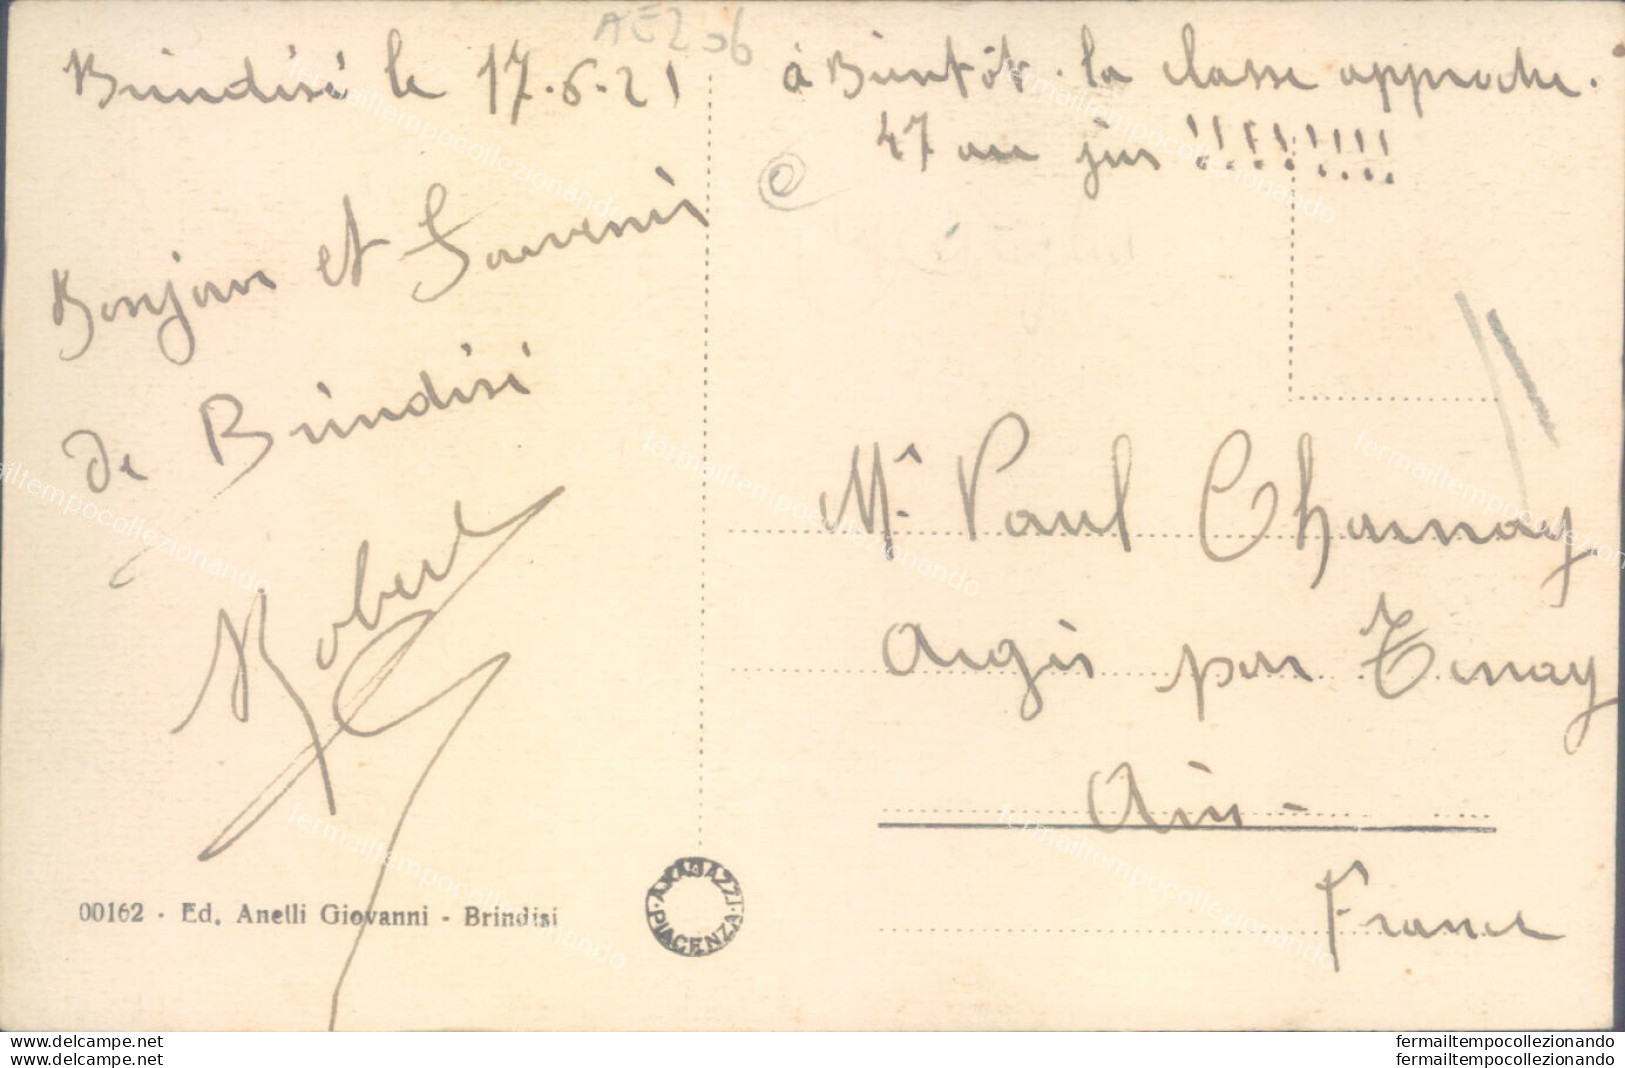 AE206
Brindisi le 17.6.21
à Bientôt. la classe approche.
47 au jus !!!!!!!!
Bonjour et Souvenir
de Brindisi
Robert
Mr Paul Charnay
Argis par Tenay
Ain -
France
00162 - Ed. Anelli Giovanni - Brindisi
A. RAMAZZI - PIACENZA
www.delcampe.net
www.delcampe.net
fermailtempocollezionando
fermailtempocollezionando